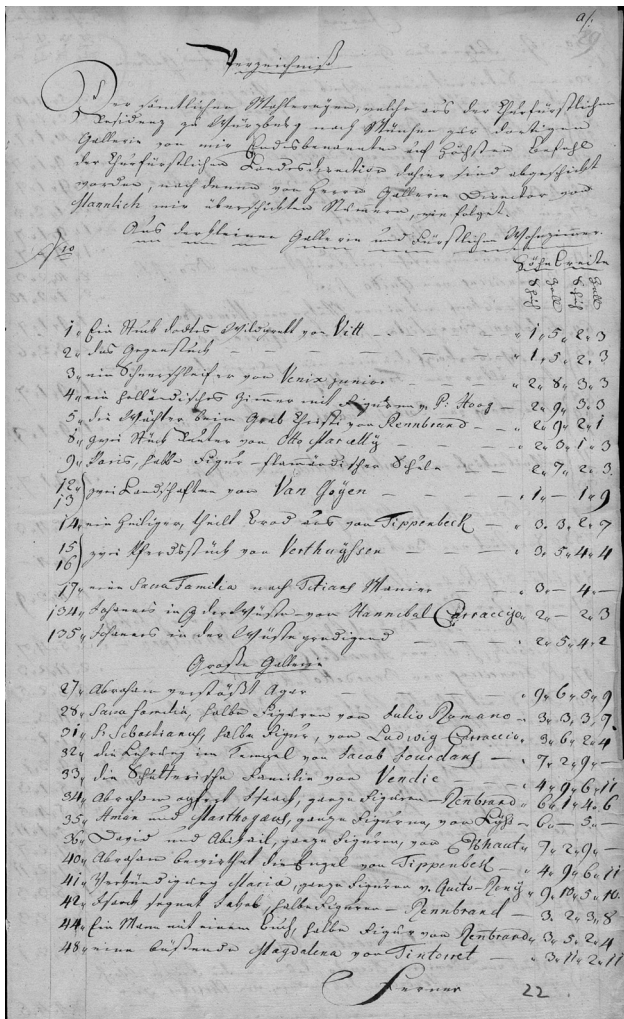 a/.
29
Verzeichniß
Der sämtlichen Mahlereyen, welche aus der Churfürstlichen
Residenz zu Würzburg nach München zur dortigen
Gallerie von mir Endesbenannten auf höchsten Befehl
der Churfürstlichen Landesdirection dahier sind abgeschickt
worden, nach denen von Herrn Gallerie Director von
Mannlich mir überschickten Numern, wie folget.
Aus der kleinen Gallerie und Fürstlichen Wohnzimmer.
Höhe Breite
Schuh Zoll Schuh Zoll
1. Ein Stuck todtes Wildprett von Vitt — 1. 5. 2. 3
2. das Gegenstuck — 1. 5. 2. 3
3. ein Scherschleifer von Venix junior — 2. 8. 3. 3
4. ein holländisches Zimmer mit Figuren v. P: Hoog — 2. 9. 3. 3
5. die Wächter beim Grab Christi von Rennbrand — 2. 9. 2. 1
8. zwei Stück Kräuter von Otto Marcelly — 2. 3. 1. 3
9. Paris, halbe Figur flamändischer Schule — 2. 7. 2. 3.
12. 13 } zwei Landschaften von Van Goyen — 1. — 1. 9
14. ein Heiliger, theilt Brod aus von Tippenbeck — 3. 3. 2. 7
15 16 } zwei Pferdsstück von Verthuyssen — 3. 5. 4. 4
17. eine Sacra Familia nach Titians Manier — 3. — 4. —
134. Johannes in der Wüste von Hannibal Carraccio. 2. — 2. 3
135. Johannes in der Wüste predigend — 2. 5. 4. 2
Große Gallerie
27. Abraham verstößt Agar — 9. 6. 5. 9
28. Sacra familia, halbe Figuren von Julio Romano — 3. 3. 3. 7.
31. S. Sebastianus, halbe Figur, von Ludwig Carraccio. 3. 6. 2. 4
32. die Lehrung im Tempel von Jacob Jourdans — 7. 2. 9. —
33. die Familie von Vendic — 4. 9. 6. 11
34. Abraham opfert Isaack, ganze Figuren — Renbrand. 6. 1. 4. 6
35. Aman und Marthogäus, ganze Figuren, von — 6. — 5. —
36. David und Abigail, ganze Figuren, von Eckhaut. 7. 2. 9. —
40. Abraham bewirthet die Engel von Tippenbeck — 4. 9. 6. 11
41. Verkündigung Mariä, ganze Figuren v. Quito-Reny. 9. 10. 5. 10.
42. Isaack segnet Jakob, halbe Figuren — Rennbrand — 3. 2. 3. 8
44. Ein Mann mit einem Buch, halbe Figur von Renbrand. 3. 5. 2. 4
48. eine büßende Magdalena von Tintorret — 3. 11. 2. 11
Ferner
22